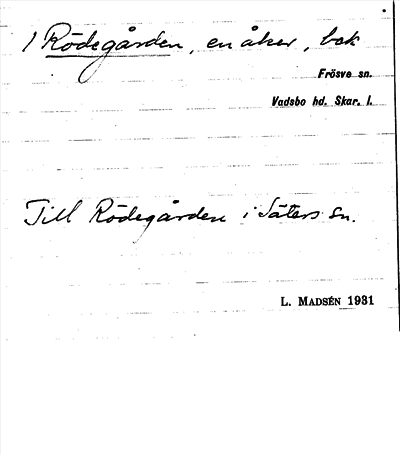 1 Rödegården, en åker, bek
Frösve sn.
Vadsbo hd. Skar. l.
Till Rödegården i Säters sn.
L. MADSÉN 1931